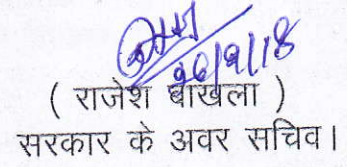 26/9/18
( राजेश बाखला )
सरकार के अवर सचिव।